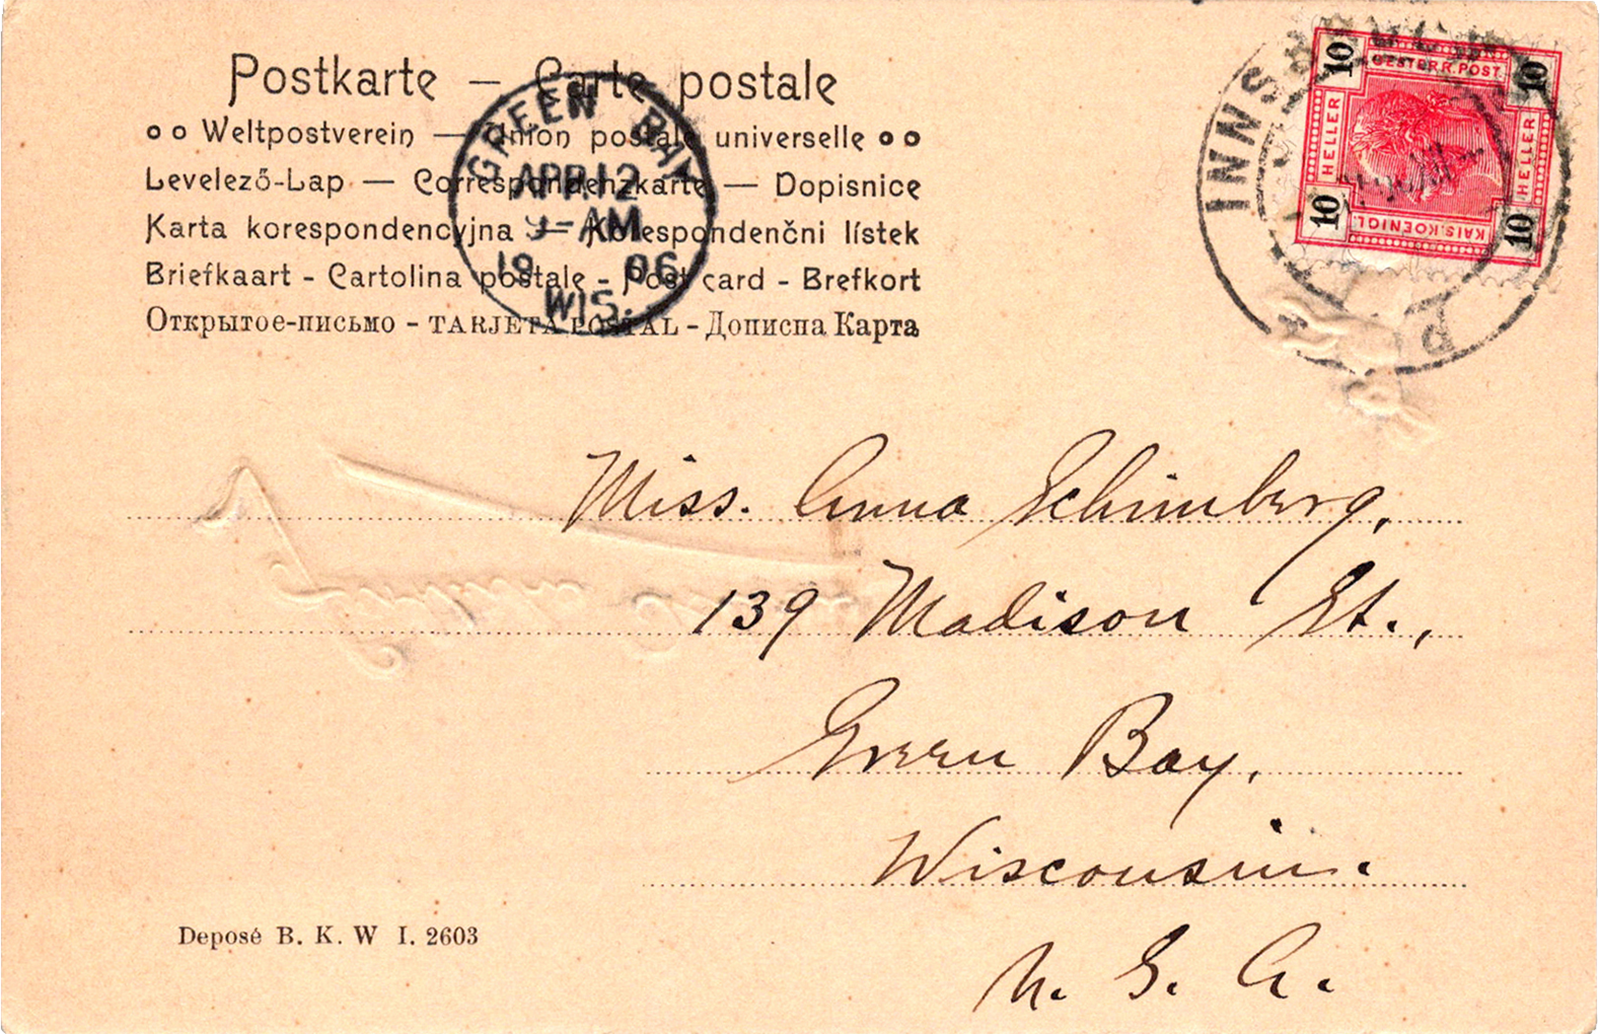 Postkarte — Carte postale
Weltpostverein — Union postale universelle
Levelező-Lap — Correspondenzkarte — Dopisnice
Karta korespondencyjna — Korespondenčni lístek
Briefkaart - Cartolina postale - Post card - Brefkort
Открытое-письмо - TARJETA POSTAL - Дописна Карта
GREEN BAY
APR 12
9-AM
1906
WIS.
INNSBRUCK
10 10
OESTERR. POST
HELLER HELLER
KAIS. KOENIGL
10 10
Miss. Anna Schimberg,
139 Madison St.,
Green Bay,
Wisconsin.
U. S. A.
Deposé B. K. W I. 2603